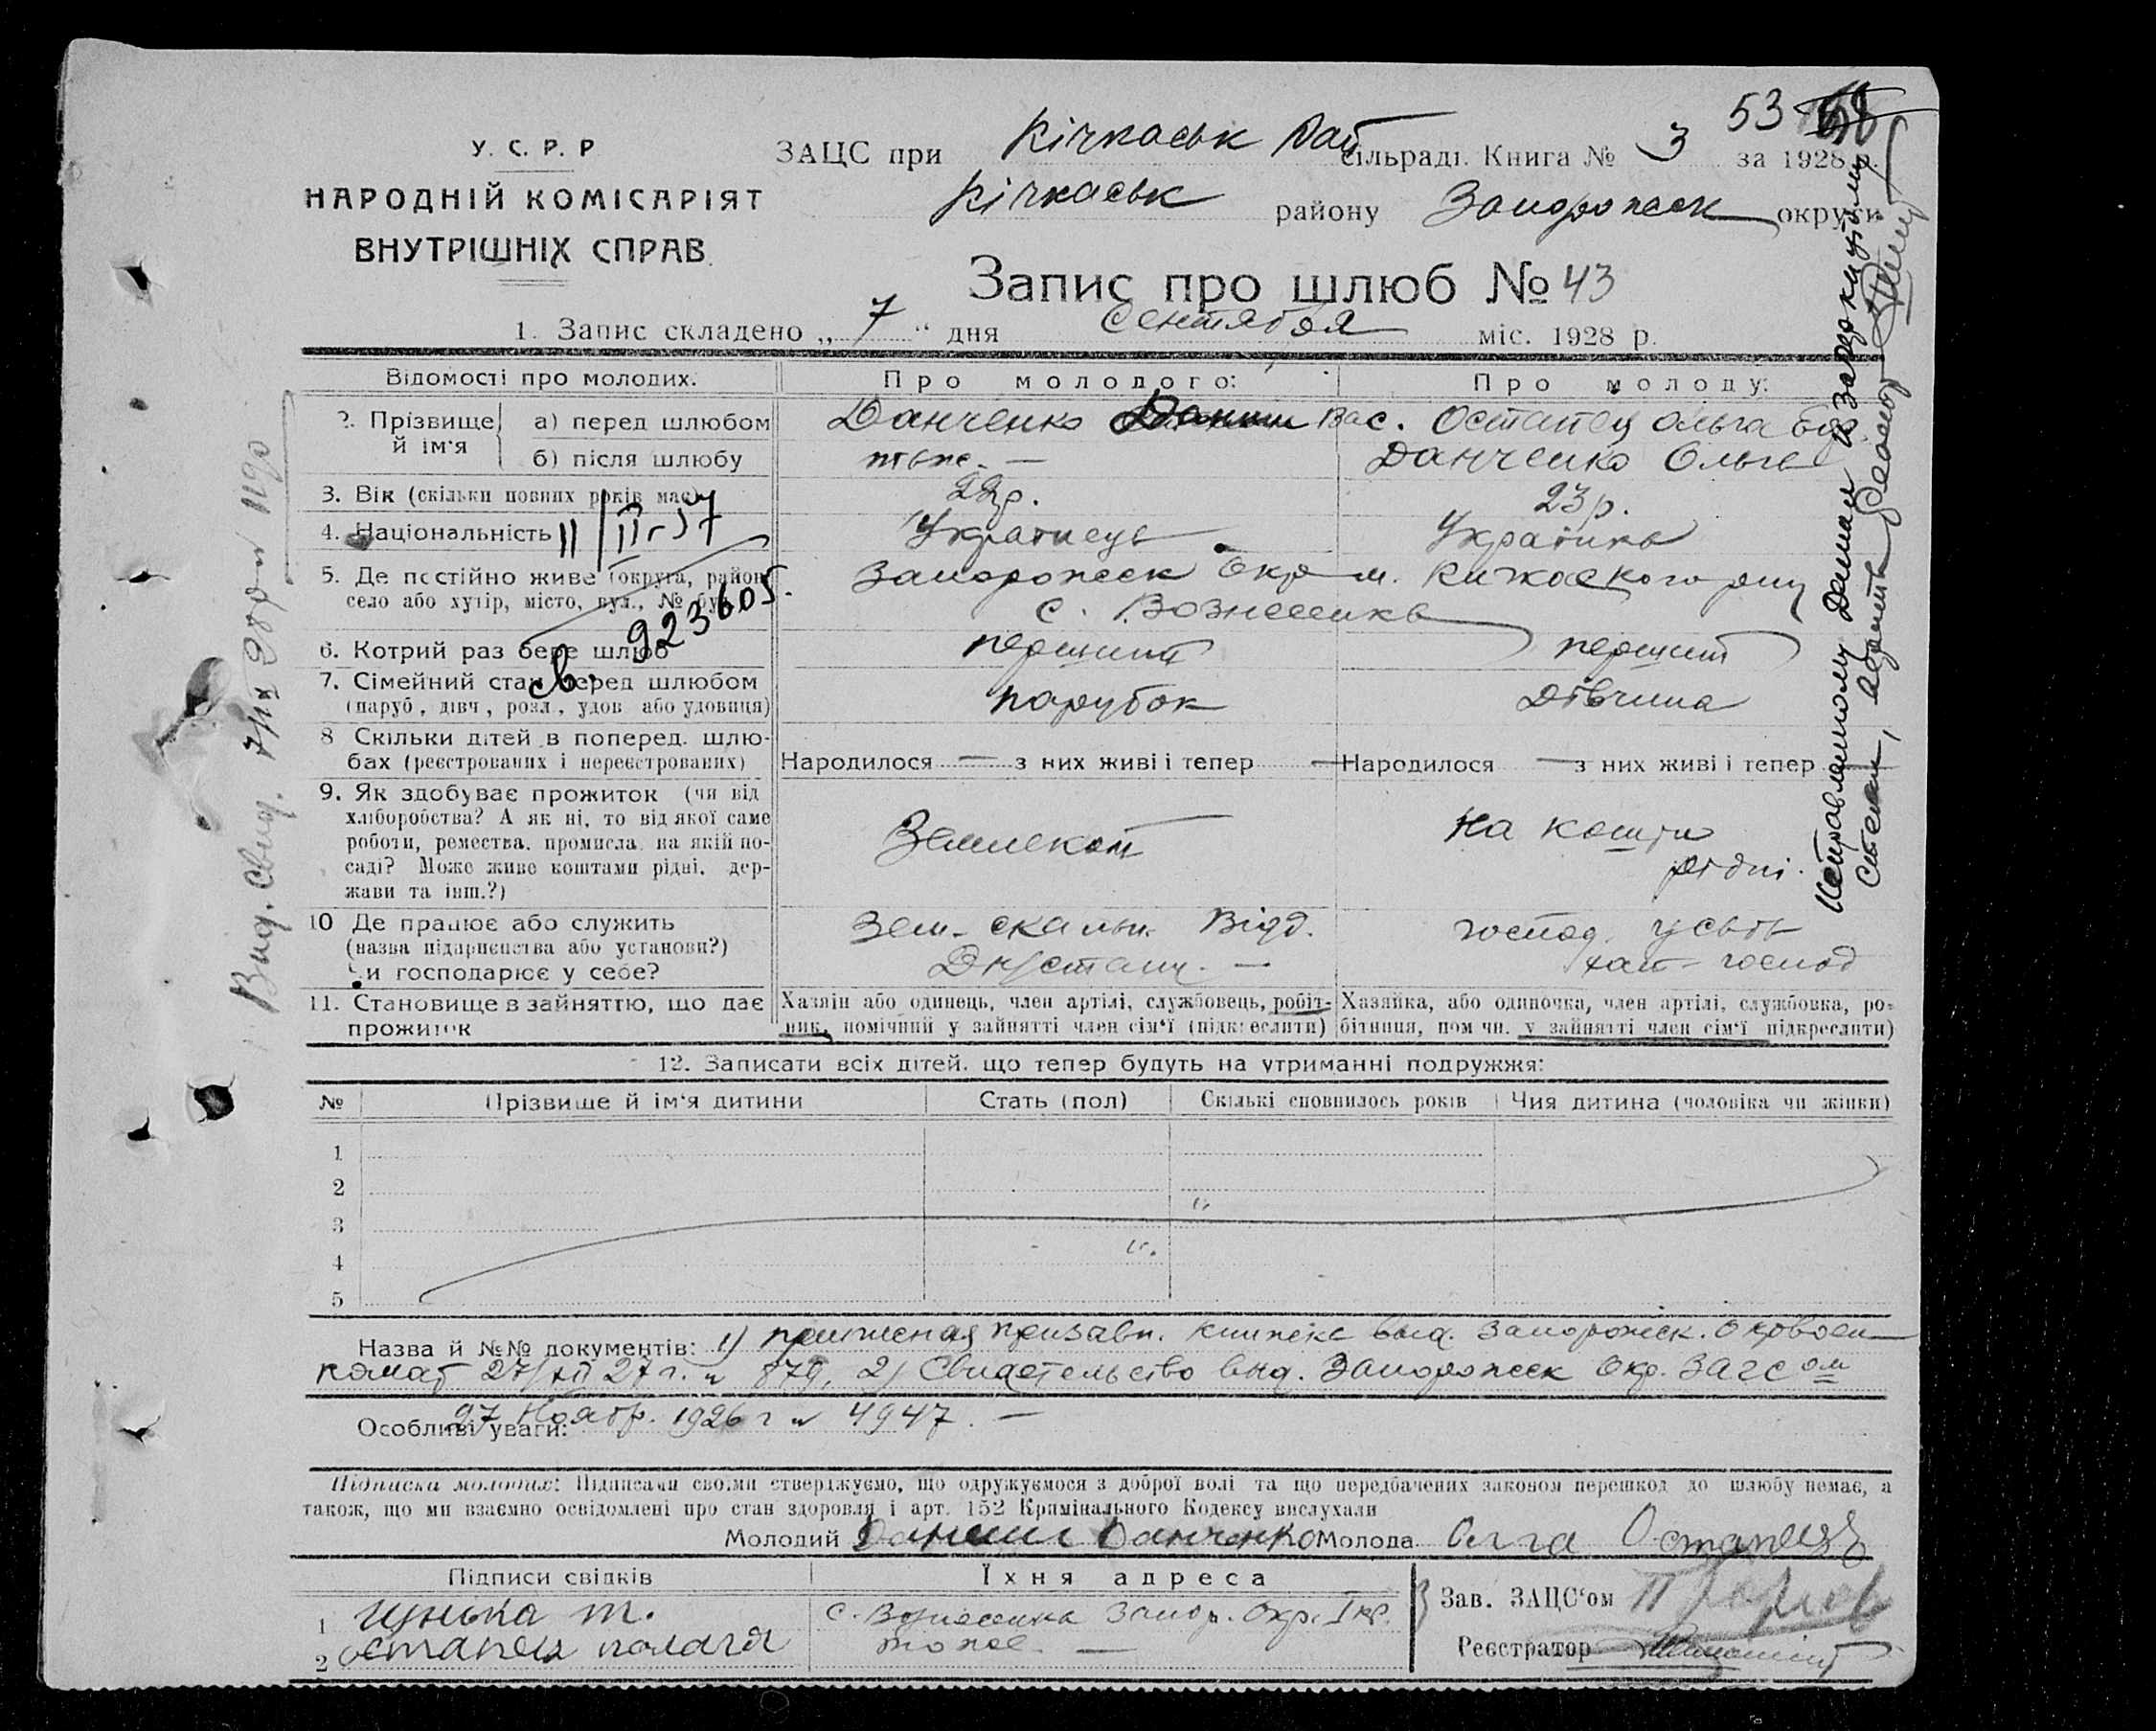 53
У. С. Р. Р
НАРОДНІЙ КОМІСАРІЯТ
ВНУТРІШНІХ СПРАВ.
ЗАЦС при Кічкаськ Рай сільраді. Книга № 3 за 1928 р.
Кічкаськ району Запорожск округи
Запис про шлюб № 43
1. Запис складено „ 7 “ дня Сентября міс. 1928 р.
Відомості про молодих. Про молодого: Про молоду:
2. Прізвище й ім'я а) перед шлюбом Данченко Вас. Остапец Ольга
б) після шлюбу Данченко Ольга
3. Вік (скільки повних років має) 22р. 23р.
4. Національність Українець Українка
5. Де постійно живе (округа, район, Запорожск Окр
село або хутір, місто, вул., № буд. с. Вознесенка
923605.
6. Котрий раз бере шлюб перший перший
7. Сімейний стан перед шлюбом парубок дівчина
(паруб, дівч, розл, удов або удовиця)
8 Скільки дітей в поперед. шлю-
бах (реєстрованих і нереєстрованих) Народилося — з них живі і тепер — Народилося — з них живі і тепер —
9. Як здобуває прожиток (чи від
хліборобства? А як ні, то від якої саме
роботи, ремества, промисла, на якій по-
саді? Може живе коштами рідні, дер-
жави та інш.?)
Землекоп На кошти
рідні.
10 Де працює або служить Зем. скальн. Відд. господ.
(назва підприємства або установи?)
Чи господарює у себе?
11. Становище в зайняттю, що дає
прожиток
Хазяїн або одинець, член артілі, службовець, робіт-
ник, помічний у зайнятті член сім'ї (підкреслити)
Хазяйка, або одиночка, член артілі, службовка, ро-
бітниця, помічн. у зайнятті член сім'ї підкреслити)
12. Записати всіх дітей, що тепер будуть на утриманні подружжя:
№ Прізвище й ім'я дитини Стать (пол) Скількі сповнилось років Чия дитина (чоловіка чи жінки)
1
2
3
4
5
Назва й №№ документів: 1) приписная призывн. книжка выд. Запорожск. Окрвоен
комат 27/XII 27 г. № 879, 2) Свидетельство выд. Запорожск Окр. ЗАГСом
27 Ноябр. 1926 г № 4947. —
Особливі уваги:
Підписка молодих: Підписами своїми стверджуємо, що одружуємося з доброї волі та що передбачених законом перешкод до шлюбу немає, а
також, що ми взаємно освідомлені про стан здоровля і арт. 152 Кримінального Кодексу вислухали
Молодий Данил Данченко Молода Олга Остапец
Підписи свідків Їхня адреса
1 с. Вознесенка Запор. Окр.
2 Остапец тоже —
Зав. ЗАЦС'ом
Реєстратор